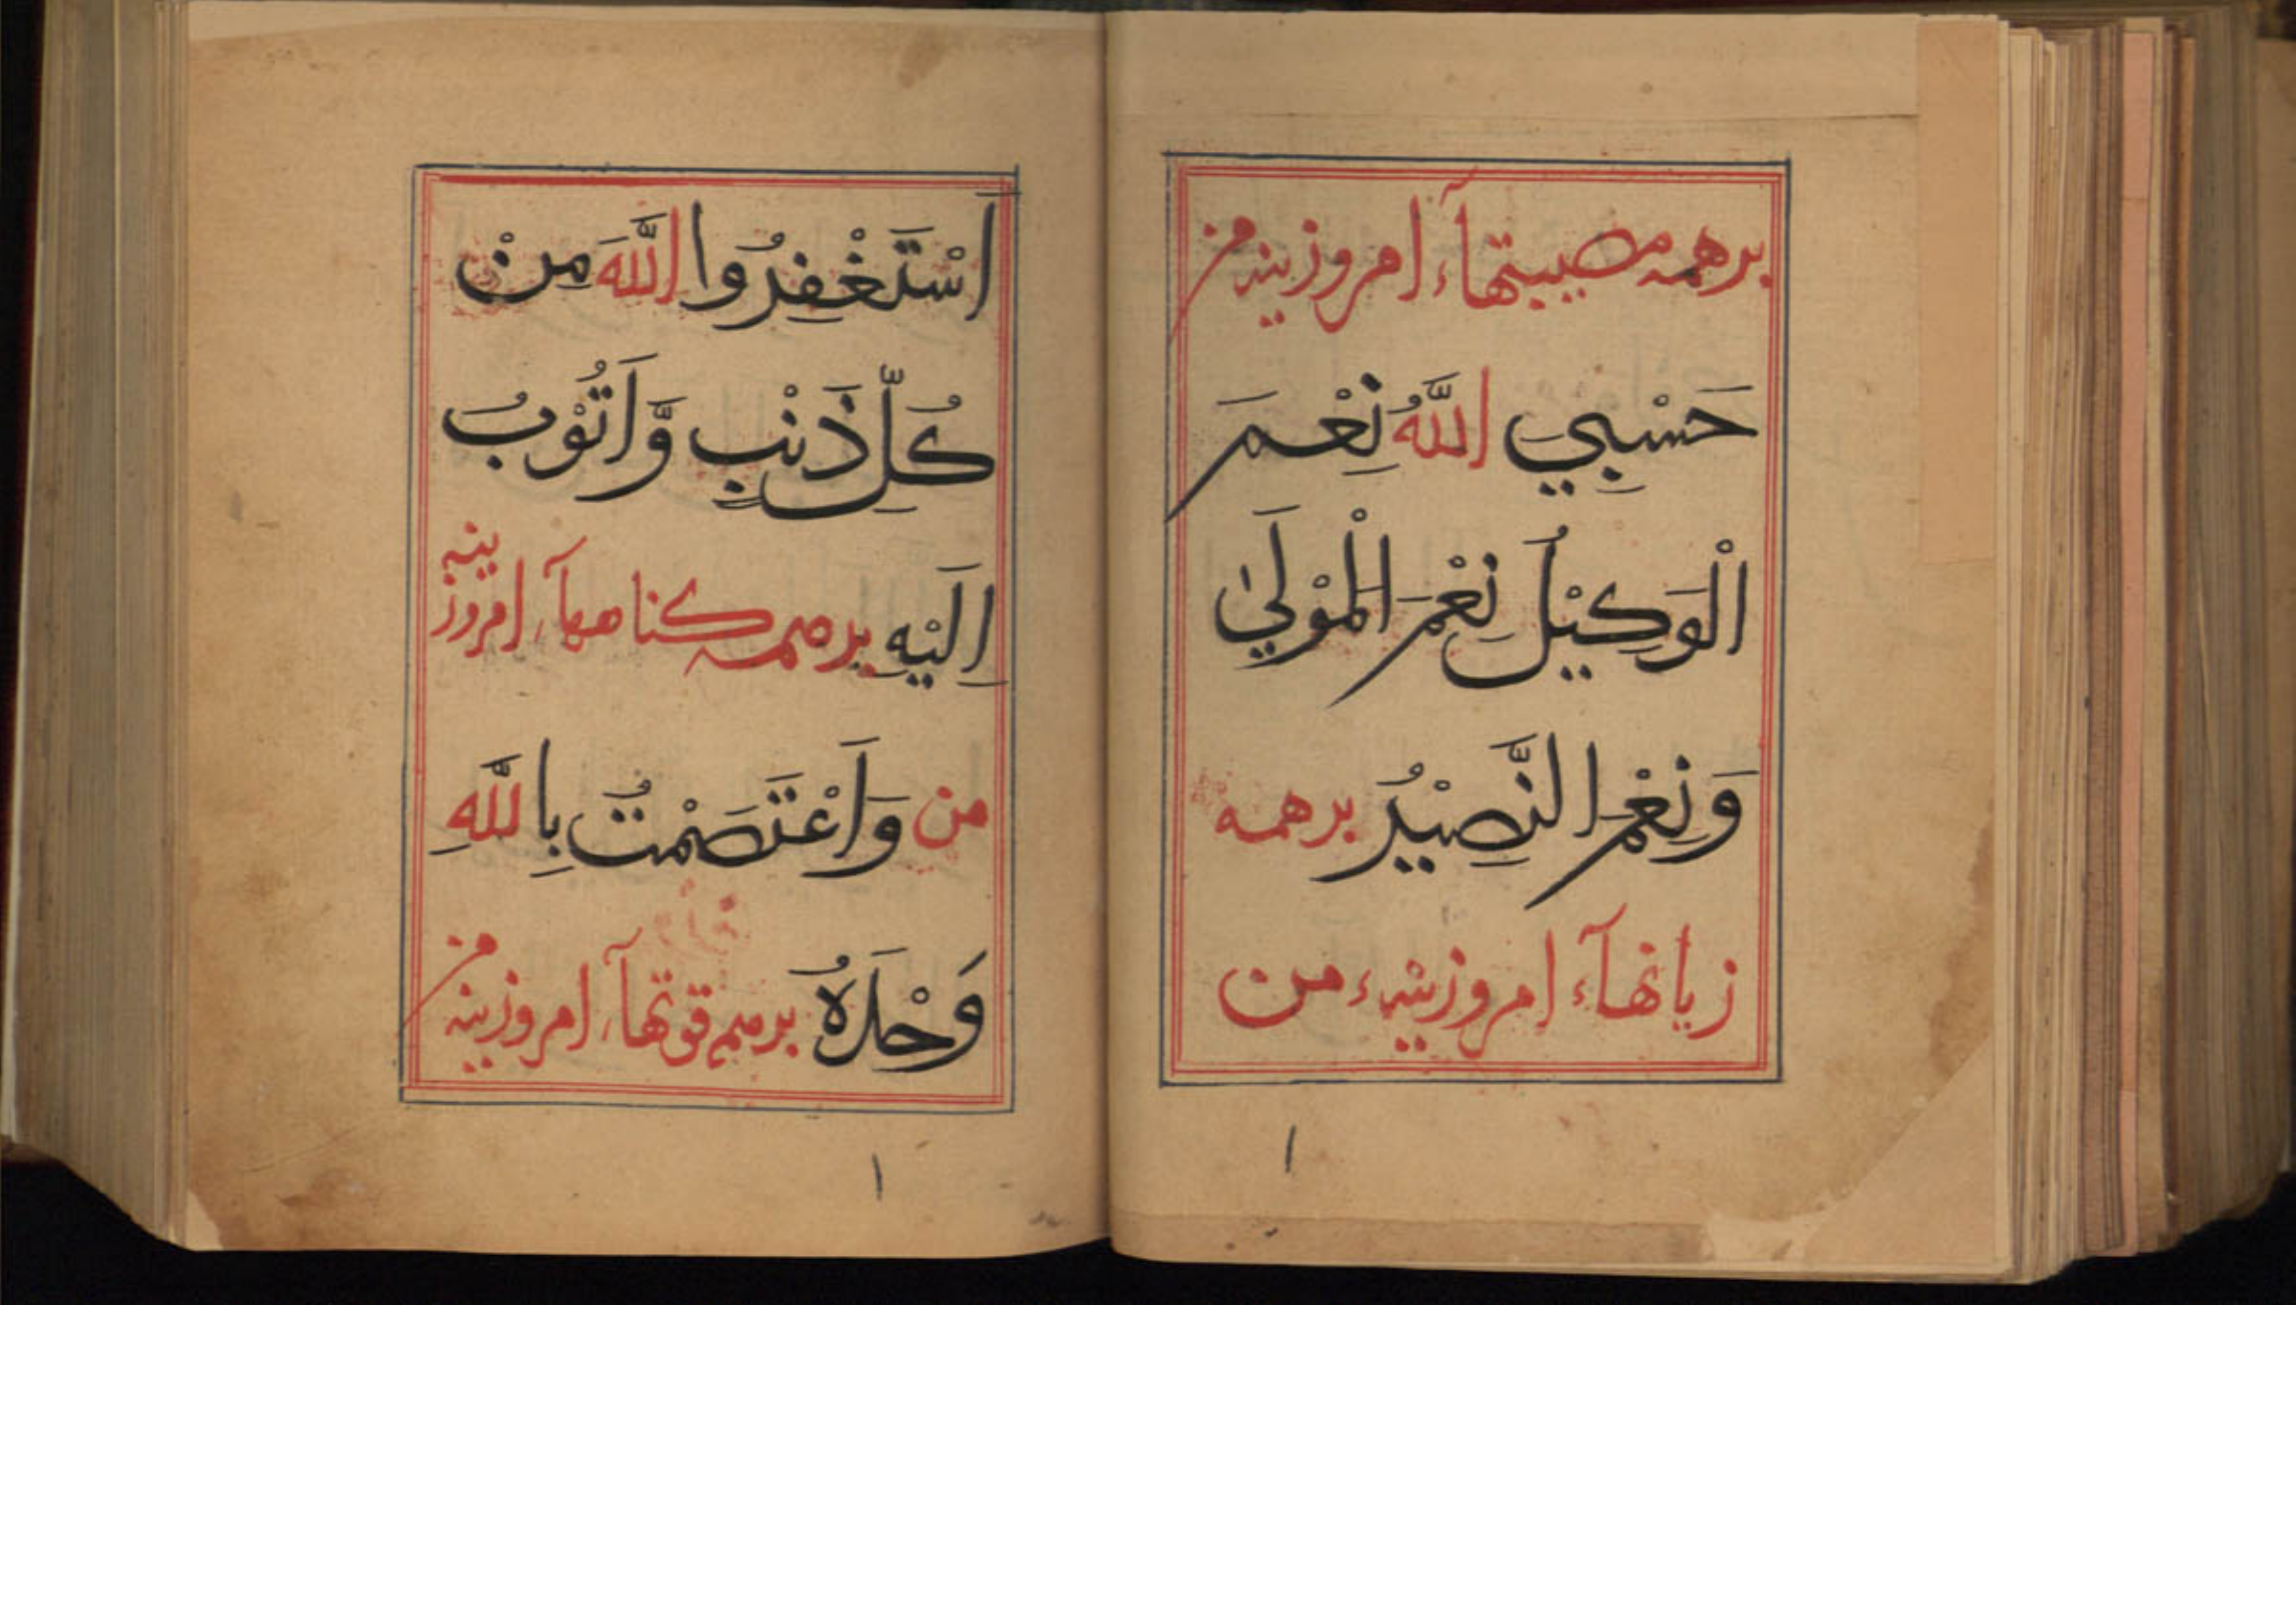 برهمه مصیبتهآء امروزینه من
حَسْبِيَ اللّٰهُ نِعْمَ
الْوَكِيْلُ نِعْمَ الْمَوْلَيٰ
وَنِعْمَ النَّصِيْرُ برهمه
زیانهآء امروزینهء من
اَسْتَغْفِرُوا اللّٰهَ مِنْ
كُلِّ ذَنْبٍ وَّاَتُوْبُ
اِلَيْهِ برهمه كناههآء امروزینه
من وَاَعْتَصَمْتُ بِاللّٰهِ
وَحْدَهُ برهمه قوتهآء امروزینه من
١ ١